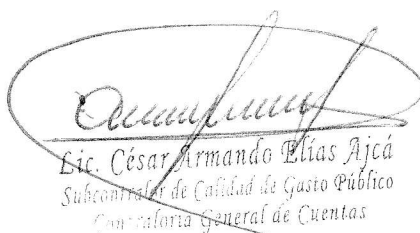 Lic. César Armando Elías Ajcá
Subcontralor de Calidad de Gasto Público
Contraloría General de Cuentas